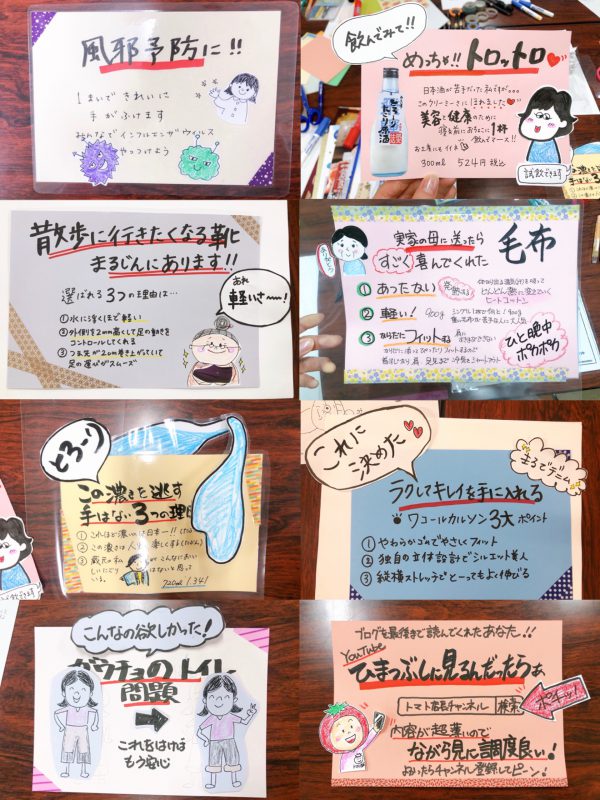 風邪予防に!!
1まいできれいに
手がふけます
みんなでインフルエンザウィルス
やっつけよう
飲んでみて!!
めっちゃ!! トロットロ
日本酒が苦手だった私ですが…
このクリーミーさにほれました
美容と健康のために
寝る前におちょこ1杯
飲んでマース!!
お土産にもイイネ
300ml 524円 税込
試飲できます
散歩に行きたくなる靴
まるじんにあります!!
選ばれる3つの理由は…
①水に浮くほど軽い
②外側を2mm高くして足の動きを
コントロールしてくれる
③つま先が2cm巻き上がっていて
足の運びがスムーズ
あれ
軽いさ〜!
ありがとう
実家の母に送ったら
すごく喜んでくれた
毛布
①あったない
どんどん熱に変えていく
ヒートコットン
②軽い! 900g
③からだにフィットね
ひと晩中
ポカポカ
とろ〜り
この濃さを逃す
手はない3つの理由
①これほど濃いのは日本一!!
②この濃さは
③蔵元の私が、こんなにおい
しいにごりはないと思って
いる。
720ml 1,341
これに
決めた
まるでデニム
ラクしてキレイを手に入れる
ワコールカルソン3大ポイント
①やわらかゴムでやさしくフィット
②独自の立体設計でシルエット美人
③縦横ストレッチでとってもよく伸びる
こんなの欲しかった!
ガウチョのトイレ
問題
これをはけば
もう安心
ブログを最後まで読んでくれたあなた!!
YouTube
ひまつぶしに見るんだったらぁ
トマト店長チャンネル 検索
ポチッ!
内容が超薄いので
ながら見に調度良い!
よかったらチャンネル登録してピーン!